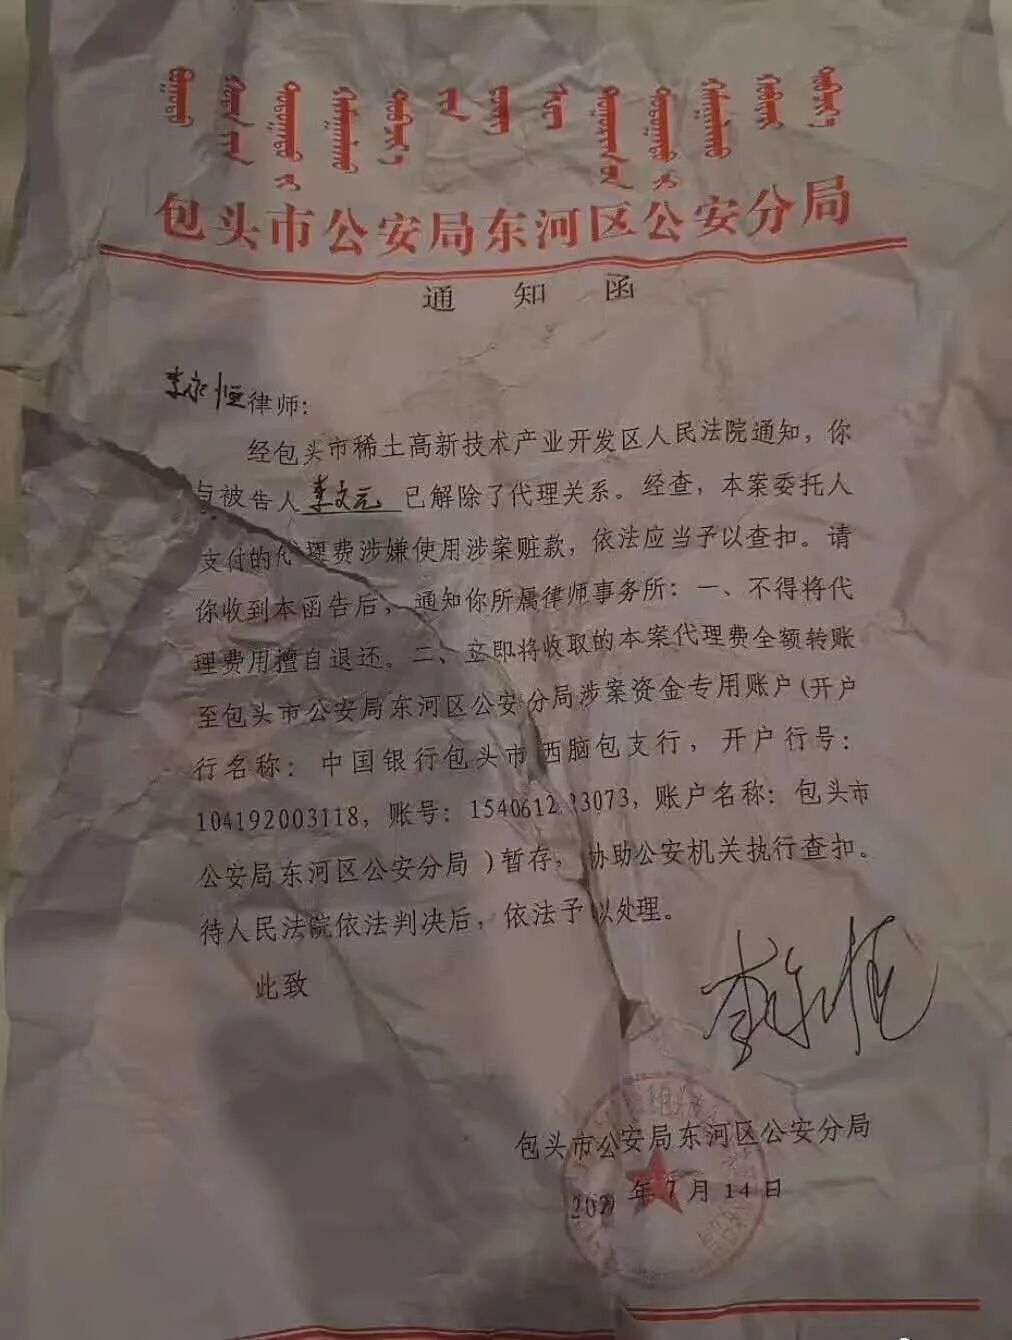 包头市公安局东河区公安分局
通知函
李永恒律师：
经包头市稀土高新技术产业开发区人民法院通知，你
与被告人李文元已解除了代理关系。经查，本案委托人
支付的代理费涉嫌使用涉案赃款，依法应当予以查扣。请
你收到本函告后，通知你所属律师事务所：一、不得将代
理费用擅自退还。二、立即将收取的本案代理费全额转账
至包头市公安局东河区公安分局涉案资金专用账户(开户
行名称：中国银行包头市西脑包支行，开户行号：
104192003118，账号：1540612 23073，账户名称：包头市
公安局东河区公安分局 )暂存，协助公安机关执行查扣。
待人民法院依法判决后，依法予以处理。
此致
李永恒
包头市公安局东河区公安分局
年7月14日